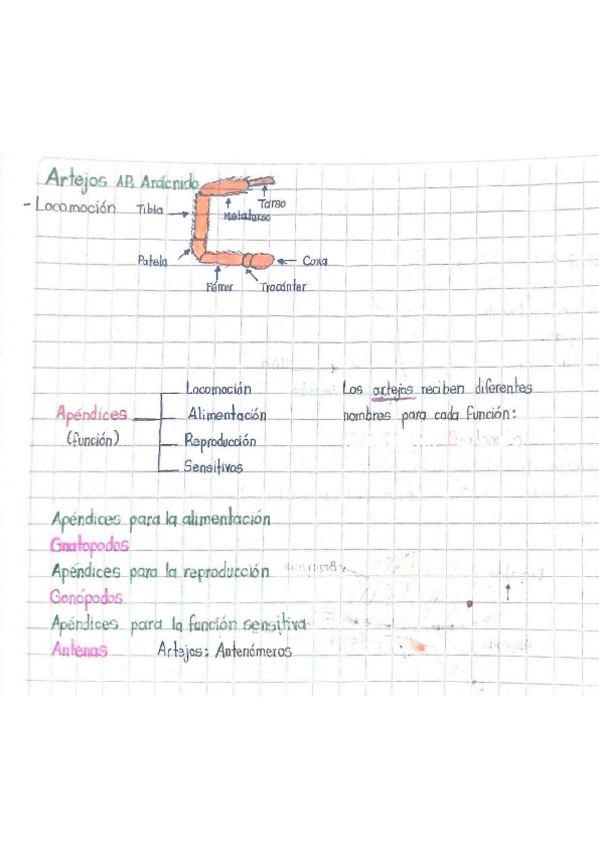 Artejos AP. Arácnido
- Locomoción
Tibia
Tarso
Metatarso
Patela
Coxa
Fémer
Trocánter
Locomoción
Los artejos reciben diferentes
Apéndices
Alimentación
nombres para cada función:
(función)
Reproducción
Sensitivos
Apéndices para la alimentación
Gnatopodos
Apéndices para la reproducción
Gonópodos
Apéndices para la función sensitiva
Antenas Artejos: Antenómeros